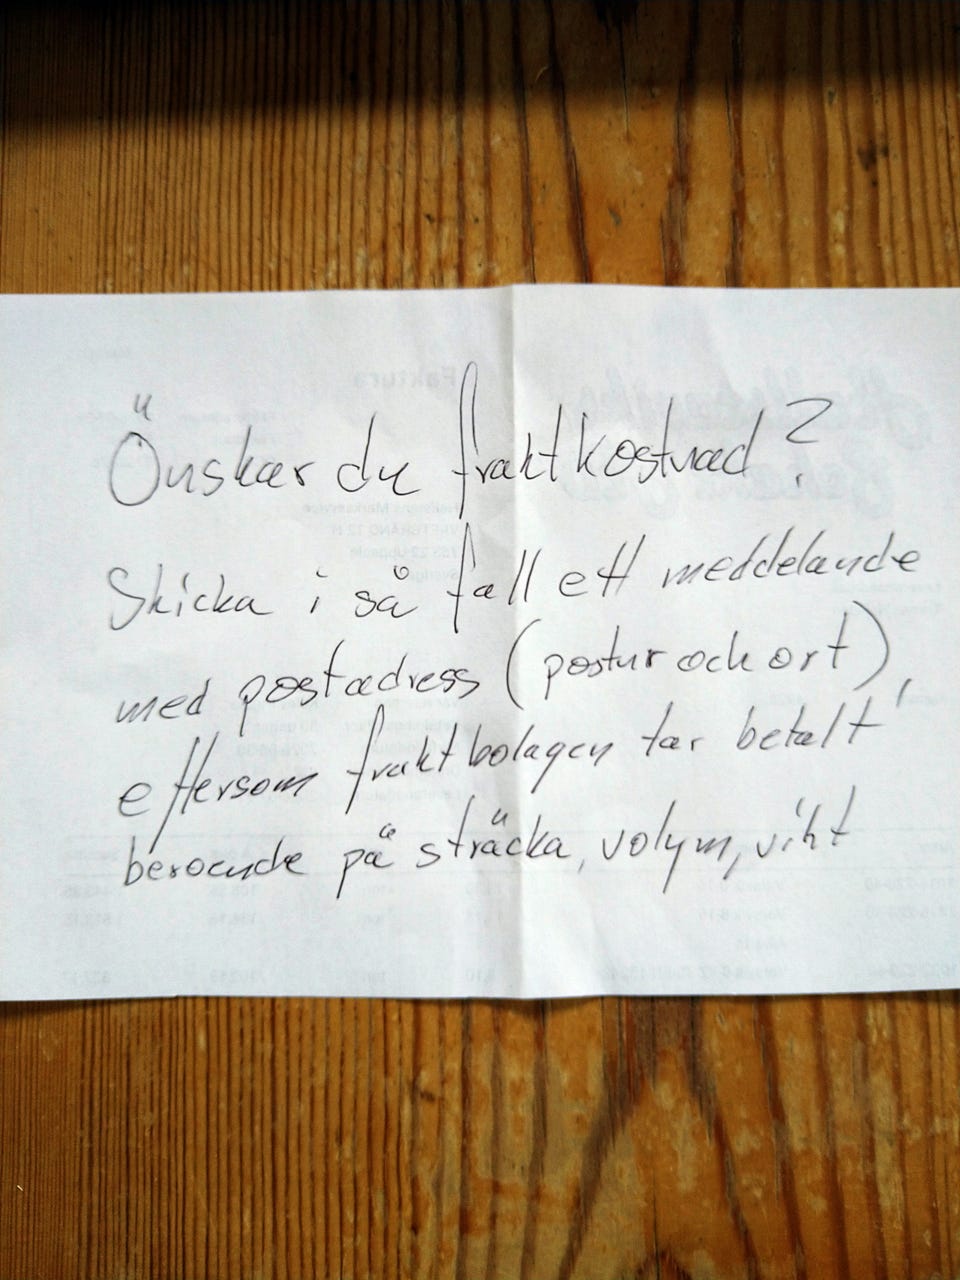 Önskar du fraktkostnad?
Skicka i så fall ett meddelande
med postadress (postnr och ort),
eftersom fraktbolagen tar betalt
beroende på sträcka, volym, vikt
Faktura